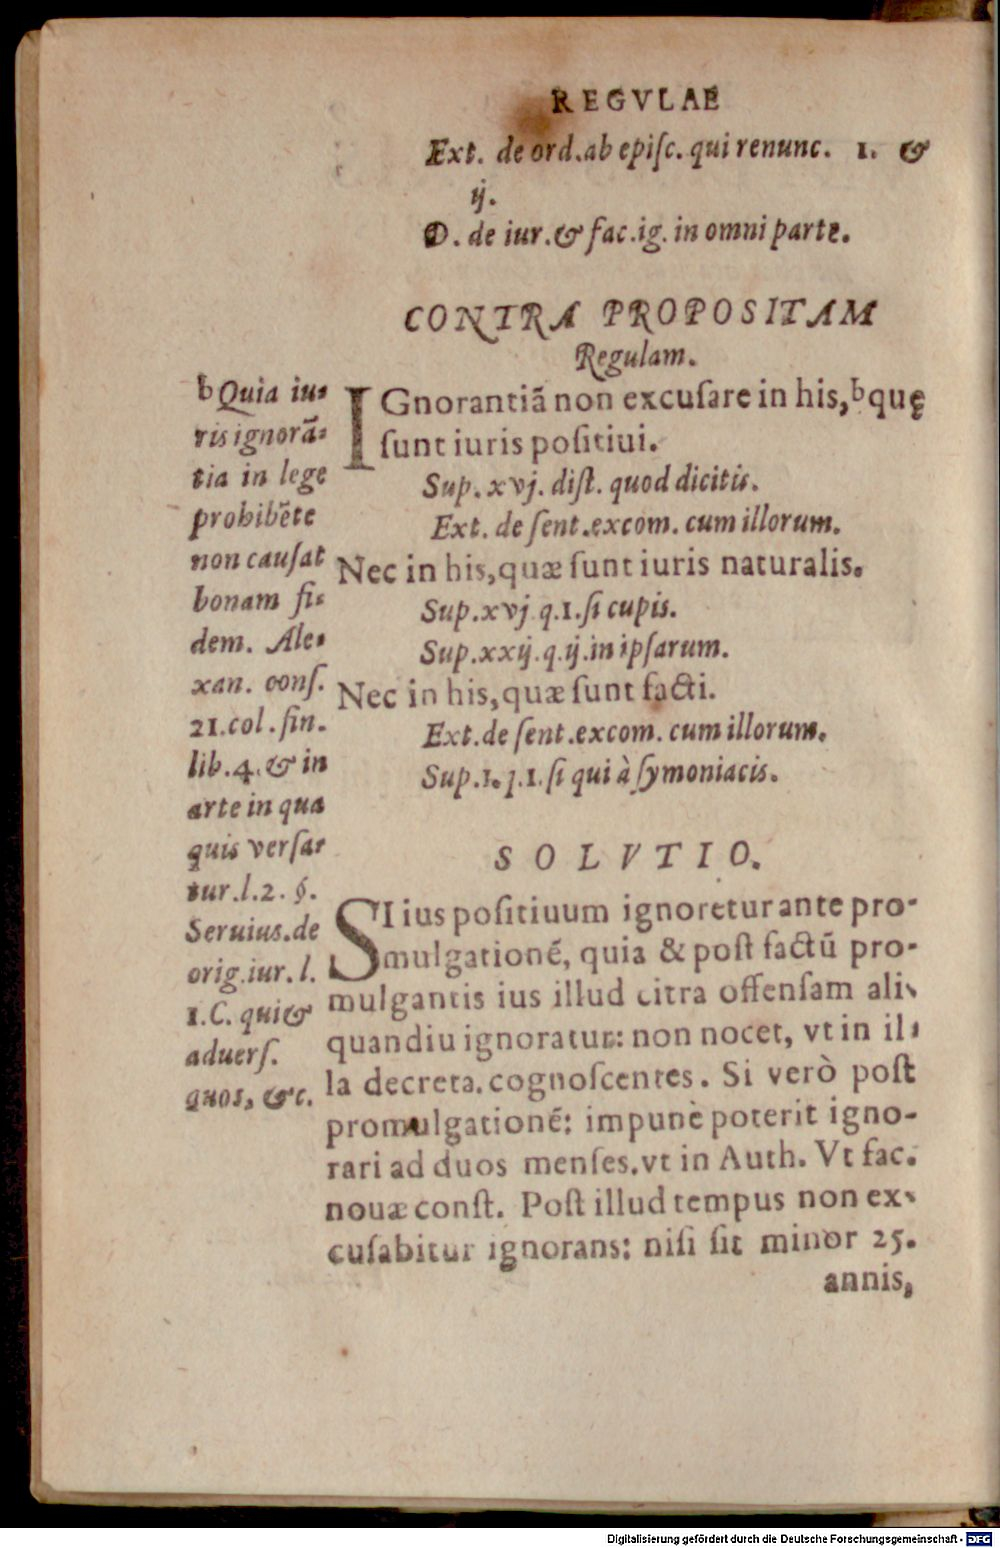 REGVLAE
Ext. de ord.ab episc. qui renunc. 1. &
ij.
D. de iur.& fac.ig. in omni parte.
CONTRA PROPOSITAM
Regulam.
IGnorantiã non excuſare in his,ᵇquę
ſunt iuris poſitiui.
Sup. xvj. diſt. quod dicitis.
Ext. de ſent.excom. cum illorum.
Nec in his,quæ ſunt iuris naturalis.
Sup.xvj q.1.ſi cupis.
Sup.xxij.q.ij.in ipſarum.
Nec in his,quæ ſunt facti.
Ext.de ſent.excom. cum illorum.
Sup.1.q.1.ſi qui à ſymoniacis.
b Quia iu-
ris ignorã-
tia in lege
prohibẽte
non cauſat
bonam fi-
dem. Ale-
xan. conſ.
21.col.fin.
lib.4.& in
arte in qua
quis verſat
tur.l.2.§.
Seruius.de
orig.iur.l.
1.C. qui&
aduerſ.
quos, &c.
SOLVTIO.
SI ius poſitiuum ignoretur ante pro-
mulgationẽ, quia & poſt factũ pro-
mulgantis ius illud citra offenſam ali-
quandiu ignoratur: non nocet, vt in il-
la decreta. cognoſcentes. Si verò poſt
promulgationẽ: impunè poterit igno-
rari ad duos menſes.vt in Auth. Vt fac.
nouæ conſt. Poſt illud tempus non ex-
cuſabitur ignorans: niſi ſit minor 25.
annis,
Digitalisierung gefördert durch die Deutsche Forschungsgemeinschaft - DFG